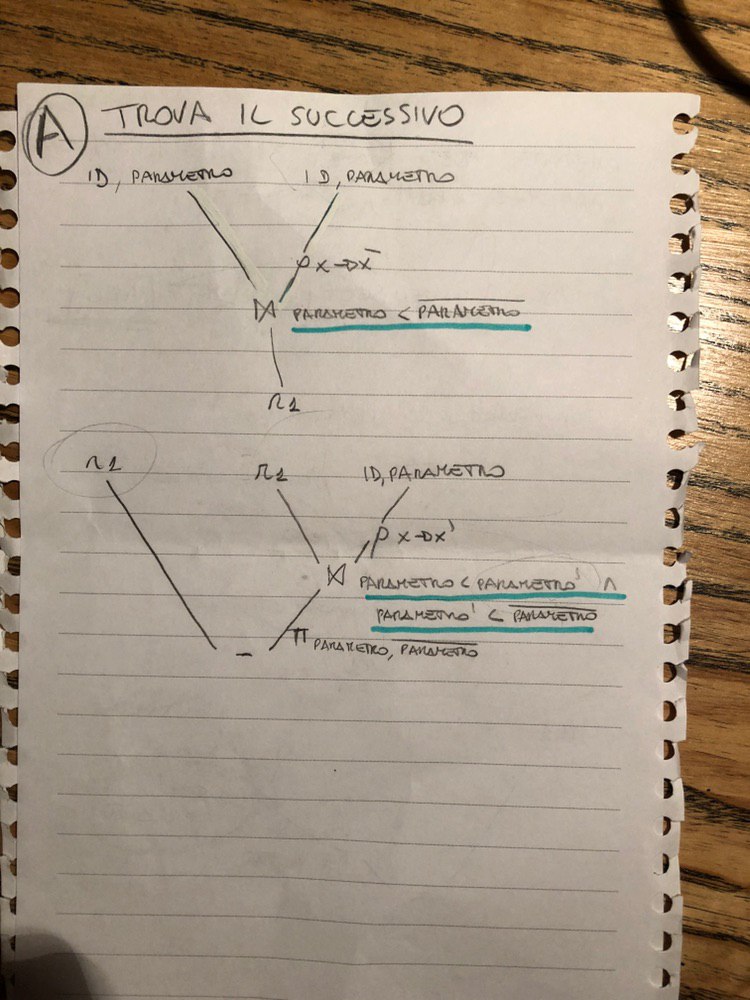 A TROVA IL SUCCESSIVO
ID, PARAMETRO ID, PARAMETRO
ρ x→x̅
⋈ PARAMETRO < P̅A̅R̅A̅M̅E̅T̅R̅O̅
R1
R1 R1 ID, PARAMETRO
ρ x→x'
⋈ PARAMETRO < PARAMETRO' ∧
PARAMETRO' < P̅A̅R̅A̅M̅E̅T̅R̅O̅
− π PARAMETRO, P̅A̅R̅A̅M̅E̅T̅R̅O̅